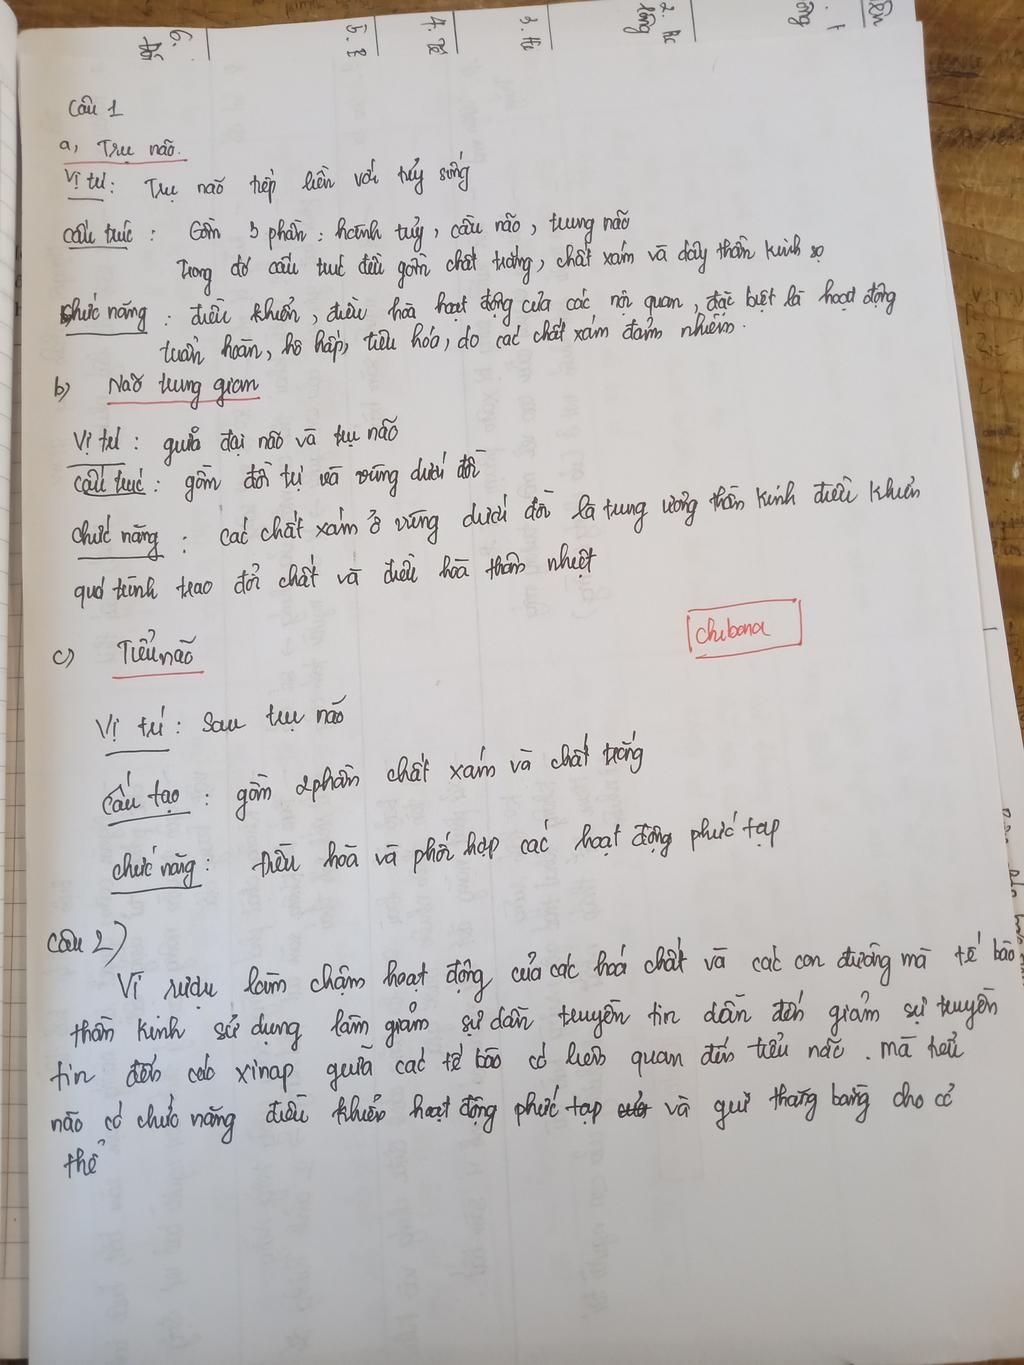 Câu 1
a, Trụ não.
Vị trí: Trụ não tiếp liền với tủy sống
Cấu trúc : Gồm 3 phần: hành tủy, cầu não, trung não
Trong đó cấu trúc đều gồm chất trắng, chất xám và dây thần kinh sọ
chức năng : điều khiển, điều hòa hoạt động của các nội quan, đặc biệt là hoạt động
tuần hoàn, hô hấp, tiêu hóa, do các chất xám đảm nhiệm.
b) Não trung gian
Vị trí : giữa đại não và trụ não
Cấu trúc : gồm đồi thị và vùng dưới đồi
chức năng : các chất xám ở vùng dưới đồi là trung ương thần kinh điều khiển
quá trình trao đổi chất và điều hòa thân nhiệt
chibona
c) Tiểu não
Vị trí : Sau trụ não
Cấu tạo : gồm 2 phần chất xám và chất trắng
chức năng : điều hoà và phối hợp các hoạt động phức tạp
Câu 2)
Vì rượu làm chậm hoạt động của các hoá chất và các con đường mà tế bào
thần kinh sử dụng làm giảm sự dẫn truyền tin dẫn đến giảm sự truyền
tin đến các xinap giữa các tế bào có liên quan đến tiểu não. mà tiểu
não có chức năng điều khiển hoạt động phức tạp và giữ thăng bằng cho cơ
thể